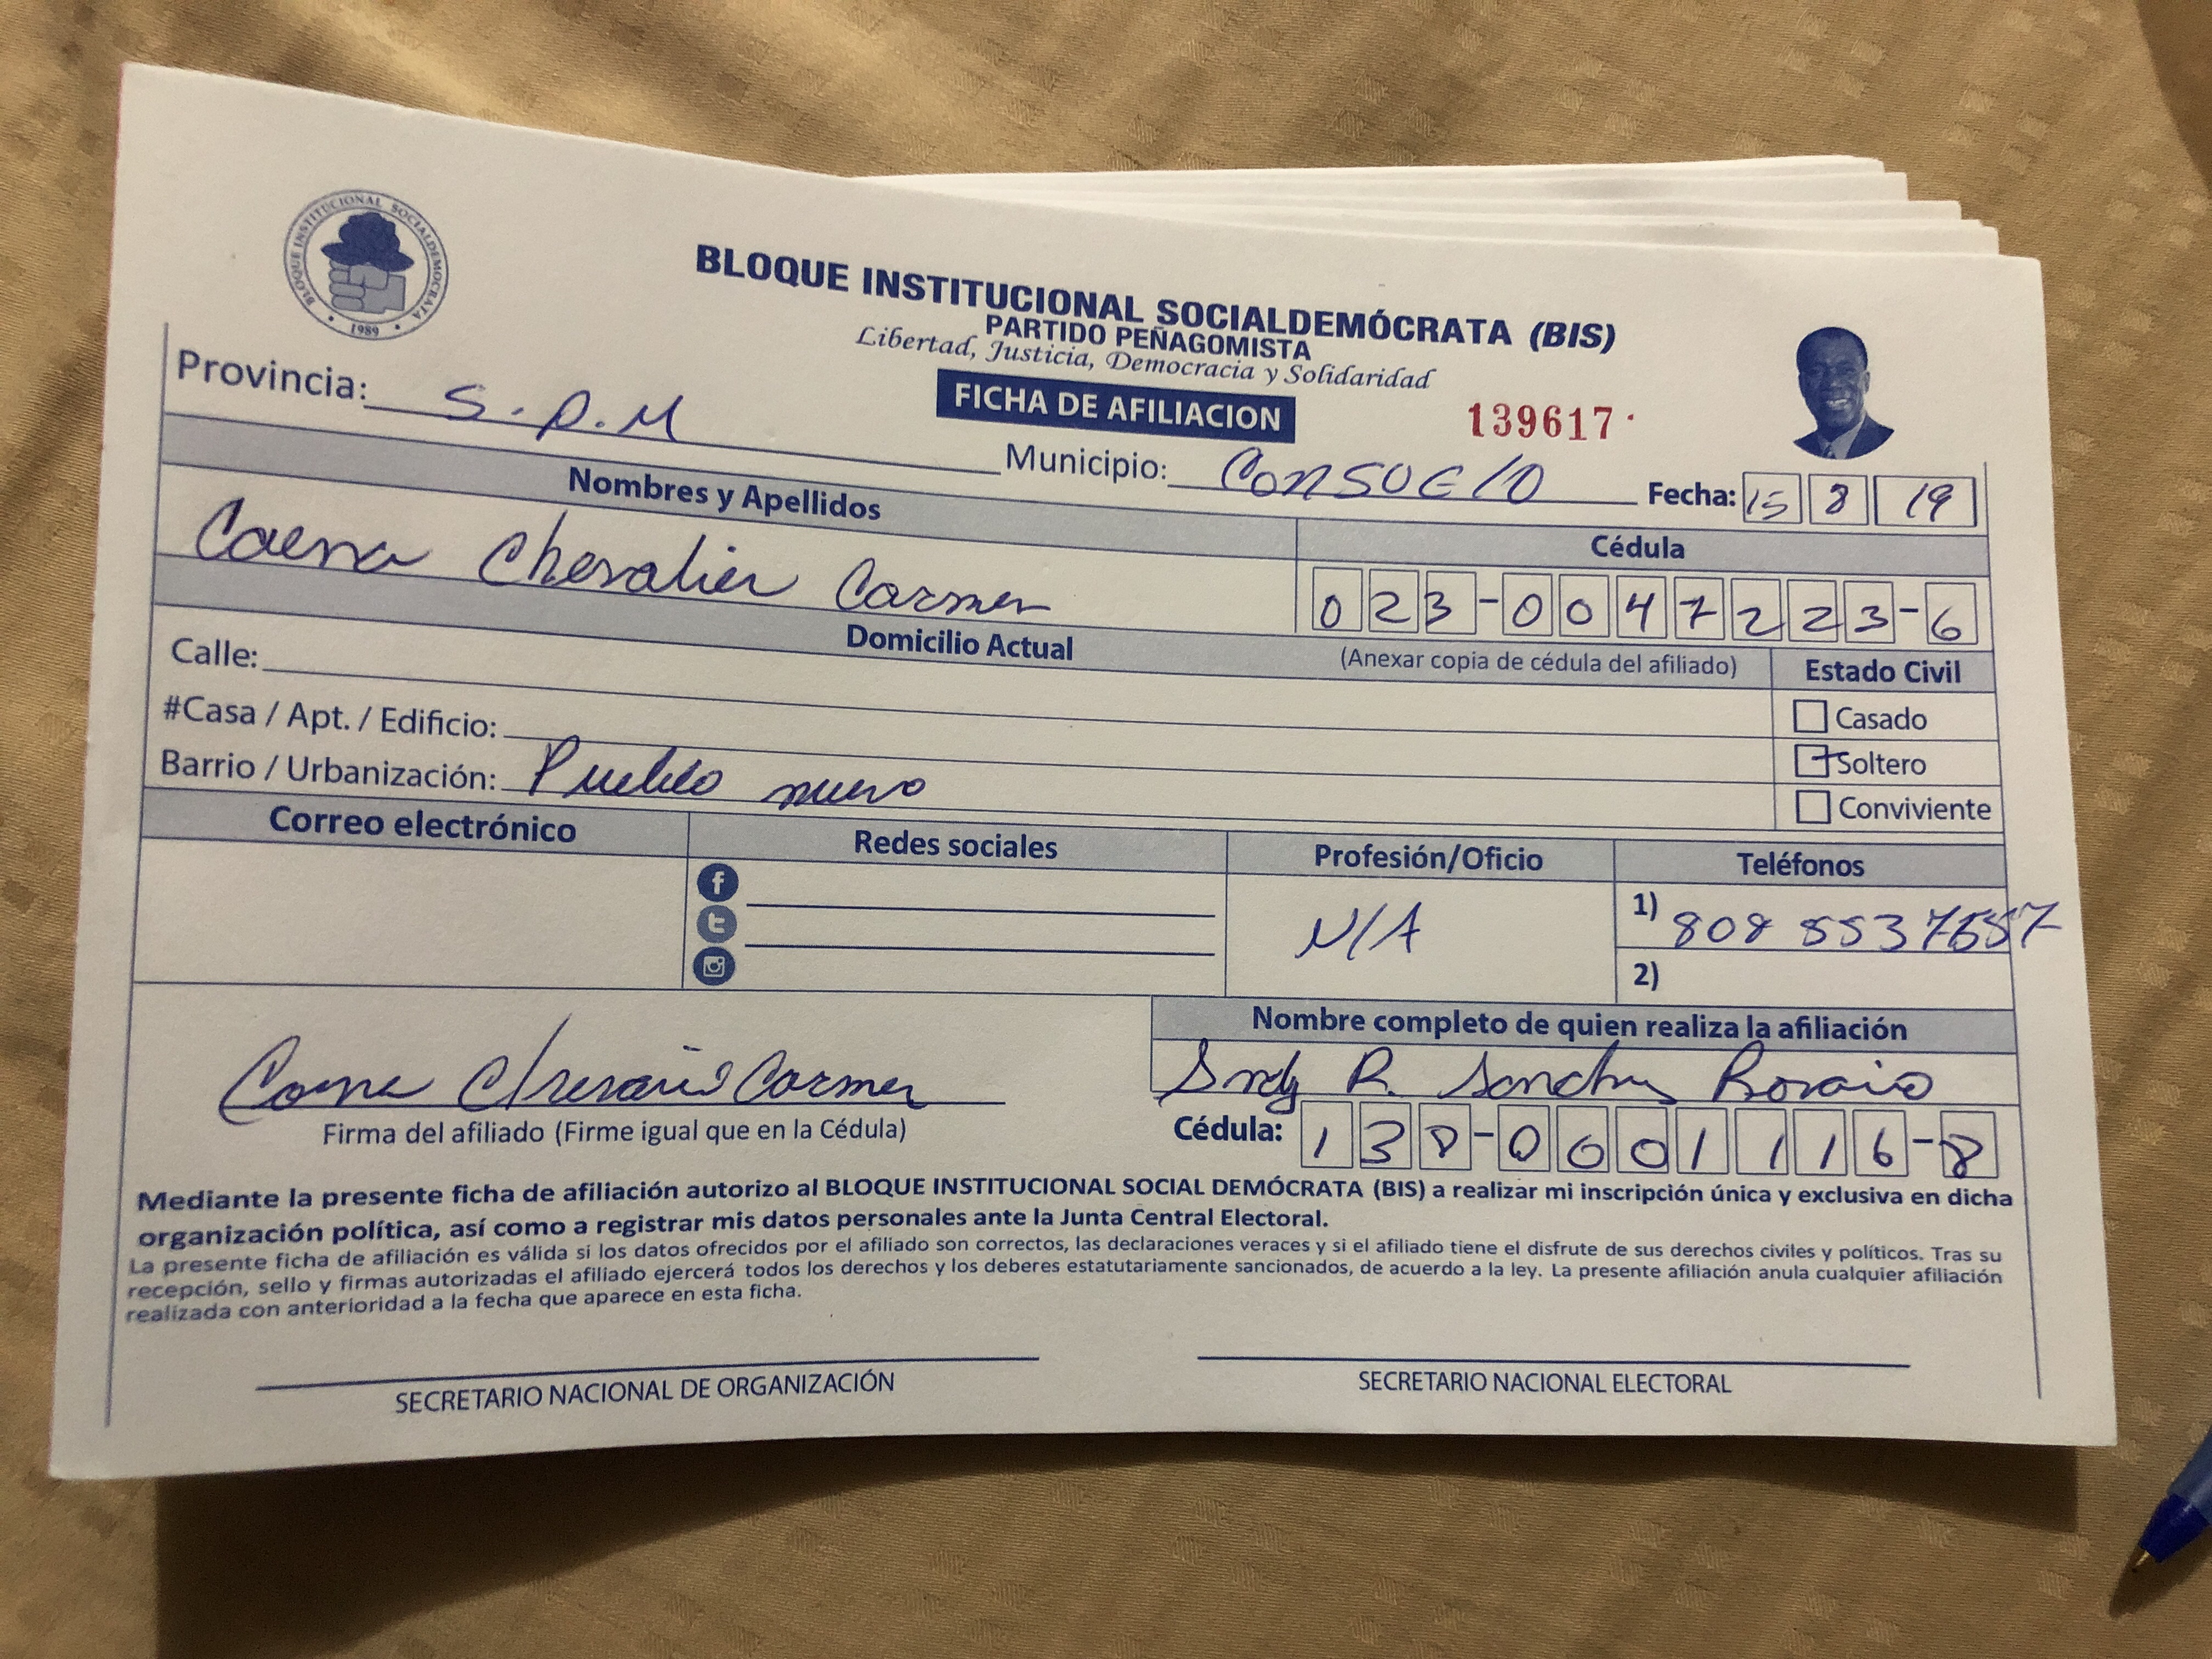 BLOQUE INSTITUCIONAL SOCIALDEMOCRATA
1989
BLOQUE INSTITUCIONAL SOCIALDEMÓCRATA (BIS)
PARTIDO PEÑAGOMISTA
Libertad, Justicia, Democracia y Solidaridad
FICHA DE AFILIACION
139617
Provincia: S.P.M
Municipio: Consuelo
Fecha: 15 8 19
Nombres y Apellidos
Cédula
Caena Chevalier Carmen
023-0047223-6
Domicilio Actual
(Anexar copia de cédula del afiliado)
Estado Civil
Calle:
#Casa / Apt. / Edificio:
Barrio / Urbanización: Pueblo nuevo
Casado
Soltero
Conviviente
Correo electrónico
Redes sociales
Profesión/Oficio
Teléfonos
N/A
1) 808 553
2)
Nombre completo de quien realiza la afiliación
Carmen
R. Rosario
Firma del afiliado (Firme igual que en la Cédula)
Cédula: 138-0001116-8
Mediante la presente ficha de afiliación autorizo al BLOQUE INSTITUCIONAL SOCIAL DEMÓCRATA (BIS) a realizar mi inscripción única y exclusiva en dicha
organización política, así como a registrar mis datos personales ante la Junta Central Electoral.
La presente ficha de afiliación es válida si los datos ofrecidos por el afiliado son correctos, las declaraciones veraces y si el afiliado tiene el disfrute de sus derechos civiles y políticos. Tras su
recepción, sello y firmas autorizadas el afiliado ejercerá todos los derechos y los deberes estatutariamente sancionados, de acuerdo a la ley. La presente afiliación anula cualquier afiliación
realizada con anterioridad a la fecha que aparece en esta ficha.
SECRETARIO NACIONAL DE ORGANIZACIÓN
SECRETARIO NACIONAL ELECTORAL